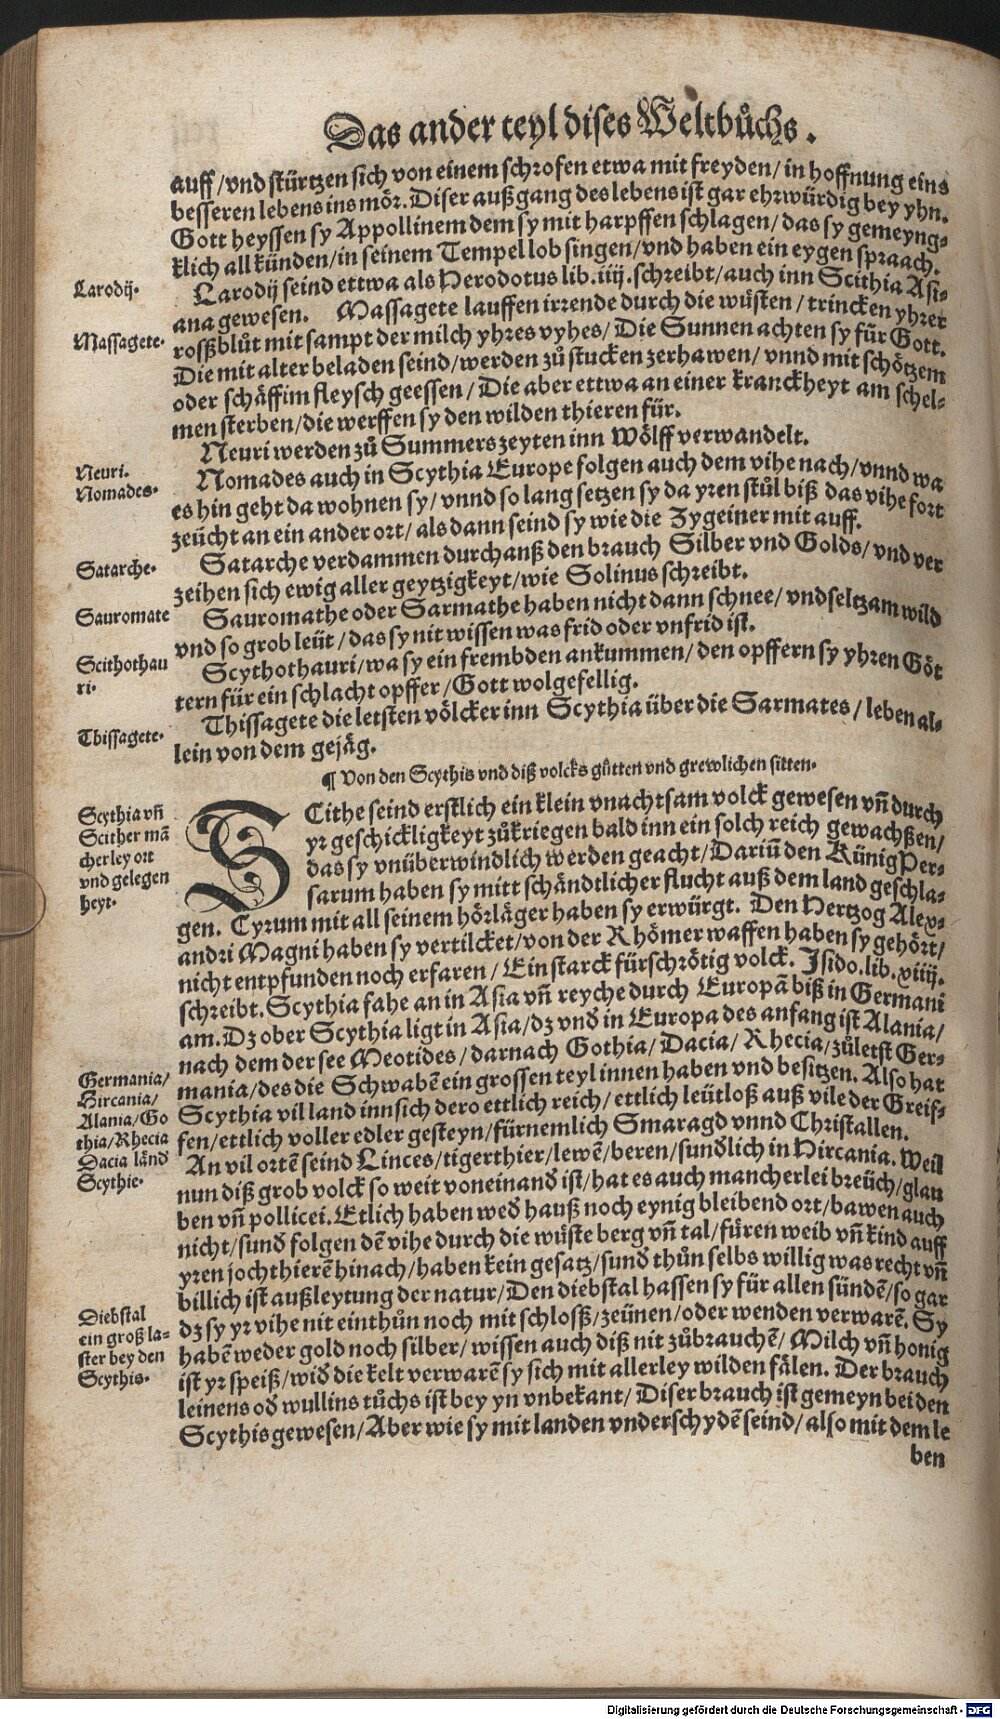 Das ander teyl dises Weltbůchs.
auff/vnd stürtzen sich von einem schrofen etwa mit freyden/in hoffnung eins
besseren lebens ins mör. Diser außgang des lebens ist gar ehrwürdig bey yhn.
Gott heyssen sy Appollinem dem sy mit harpffen schlagen/das sy gemeyng-
klich all künden/in seinem Tempel lob singen/vnd haben ein eygen spraach.
Larodij.
Larodij seind ettwa als Herodotus lib. iiij. schreibt/auch inn Scithia Asi-
ana gewesen. Massagete lauffen irrende durch die wüsten/trincken yhrer
Massagete.
rossßblůt mit sampt der milch yhres vyhes/Die Sunnen achten sy für Gott.
Die mit alter beladen seind/werden zů stucken zerhawen/vnnd mit schötzem
oder schäffim fleysch geessen/Die aber ettwa an einer kranckheyt am schel-
men sterben/die werffen sy den wilden thieren für.
Neuri.
Neuri werden zů Summerszeyten inn Wölff verwandelt.
Nomades.
Nomades auch in Scythia Europe folgen auch dem vihe nach/vnnd wa
es hin geht da wohnen sy/vnnd so lang setzen sy da yren stůl biß das vihe fort
zeücht an ein ander ort/als dann seind sy wie die Zygeiner mit auff.
Satarche.
Satarche verdammen durchauß den brauch Silber vnd Golds/vnd ver
zeihen sich ewig aller geytzigkeyt/wie Solinus schreibt.
Sauromate
Sauromathe oder Sarmathe haben nicht dann schnee/vnd seltzam wild
vnd so grob leüt/das sy nit wissen was frid oder vnfrid ist.
Scithothau
ri.
Scythothauri/wa sy ein frembden ankummen/den opffern sy yhren Göt
tern für ein schlacht opffer/Gott wolgefellig.
Thissagete.
Thissagete die letsten völcker inn Scythia über die Sarmates/leben al-
lein von dem gejäg.
¶ Von den Scythis vnd diß volcks gůtten vnd grewlichen sitten.
Scythia vñ
Scither mā
cherley ort
vnd gelegen
heyt.
SCithe seind erstlich ein klein vnachtsam volck gewesen vñ durch
yr geschickligkeyt zů kriegen bald inn ein solch reich gewachßen/
das sy vnüberwindlich werden geacht/Dariū den Künig Per-
sarum haben sy mitt schändtlicher flucht auß dem land geschla-
gen. Cyrum mit all seinem hörläger haben sy erwürgt. Den Hertzog Alex-
andri Magni haben sy vertilcket/von der Rhömer waffen haben sy gehört/
nicht entpfunden noch erfaren/Ein starck fürschrötig volck. Isido. lib. xiiij.
schreibt. Scythia fahe an in Asia vñ reyche durch Europā biß in Germani
am. Dz ober Scythia ligt in Asia/dz vnd in Europa des anfang ist Alania/
nach dem der see Meotides/darnach Gothia/Dacia/Rhecia/zůletst Ger-
Germania/
Hircania/
Alania/Go
thia/Rhecia
Dacia länd
Scythie.
mania/des die Schwabē ein grossen teyl innen haben vnd besitzen. Also hat
Scythia vil land inn sich dero ettlich reich/ettlich leütloß auß vile der Greif-
fen/ettlich voller edler gesteyn/fürnemlich Smaragd vnnd Christallen.
An vil ortē seind Linces/tigerthier/lewē/beren/sunđlich in Hircania. Weil
nun diß grob volck so weit voneinand ist/hat es auch mancherlei breüch/glau
ben vñ pollicei. Etlich haben weđ hauß noch eynig bleibend ort/bawen auch
nicht/sunđ folgen dē vihe durch die wüste berg vñ tal/füren weib vñ kind auff
yren jochthierē hinach/haben kein gesatz/sunđ thůn selbs willig was recht vñ
billich ist außleytung der natur/Den diebstal hassen sy für allen sündē/so gar
Diebstal
ein groß la-
ster bey den
Scythis.
dz sy yr vihe nit einthůn noch mit schlosß/zeünen/oder wenden verwarē. Sy
habē weder gold noch silber/wissen auch diß nit zů brauchē/Milch vñ honig
ist yr speiß/wiđ die kelt verwarē sy sich mit allerley wilden fälen. Der brauch
leinens ođ wullins tůchs ist bey yn vnbekant/Diser brauch ist gemeyn bei den
Scythis gewesen/Aber wie sy mit landen vnderschydē seind/also mit dem le
ben
Digitalisierung gefördert durch die Deutsche Forschungsgemeinschaft - DFG